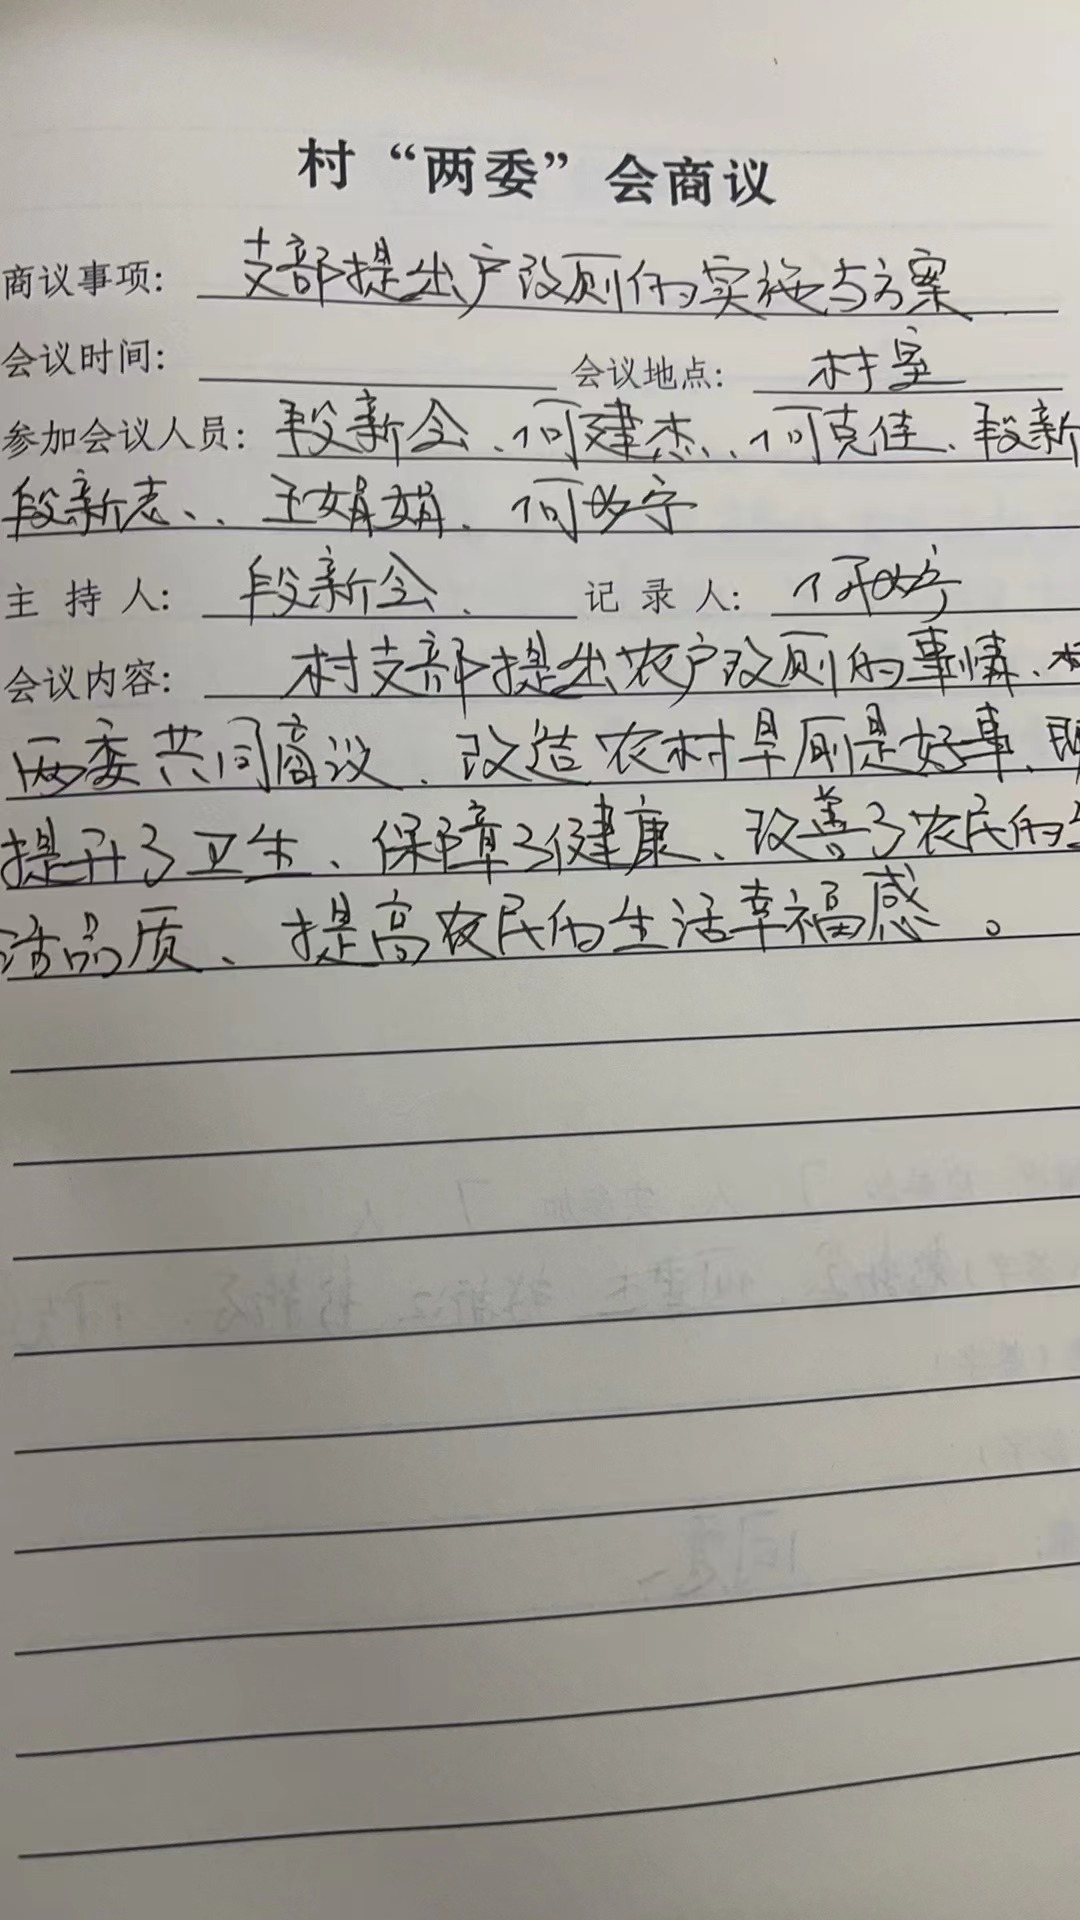 村“两委”会商议
商议事项：支部提出户改厕的实施与方案
会议时间： 会议地点：村室
参加会议人员：段新会、何建杰、何克佳、段新
段新志、、王娟娟、何
主 持 人：段新会、 记 录 人：何
会议内容：村支部提出农户改厕的事情、村
两委共同商议、改造农村旱厕是好事、既
提升了卫生、保障了健康、改善了农民的生
活品质、提高农民的生活幸福感。